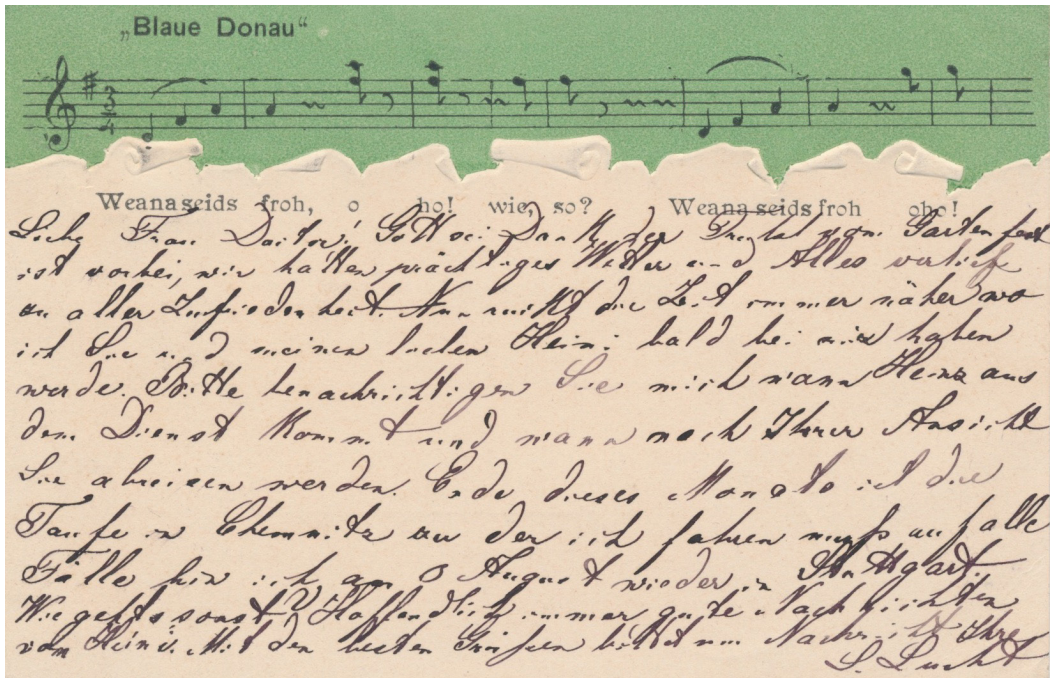 „Blaue Donau“
Weana seids froh, o ho! wie, so? Weana seids froh oho!
Liebe Frau Doctor! Gott sei Dank der Trubel vom Gartenfest
ist vorbei, wir hatten prächtiges Wetter und Alles verlief
zu aller Zufriedenheit. Nun rückt die Zeit immer näher wo
ich Sie und meinen lieben Heini bald bei mir haben
werde. Bitte benachrichtigen Sie mich wann Heini aus
dem Dienst kommt und wann nach Ihrer Ansicht
Sie abreisen werden. Ende dieses Monats ist die
Taufe in Chemnitz zu der ich fahren muß auf alle
Fälle bin ich am August wieder in Stuttgart.
Wie gehts sonst? Hoffendlich immer gute Nachrichten
vom Heini. Mit den besten Grüßen bittet um Nachricht Ihre